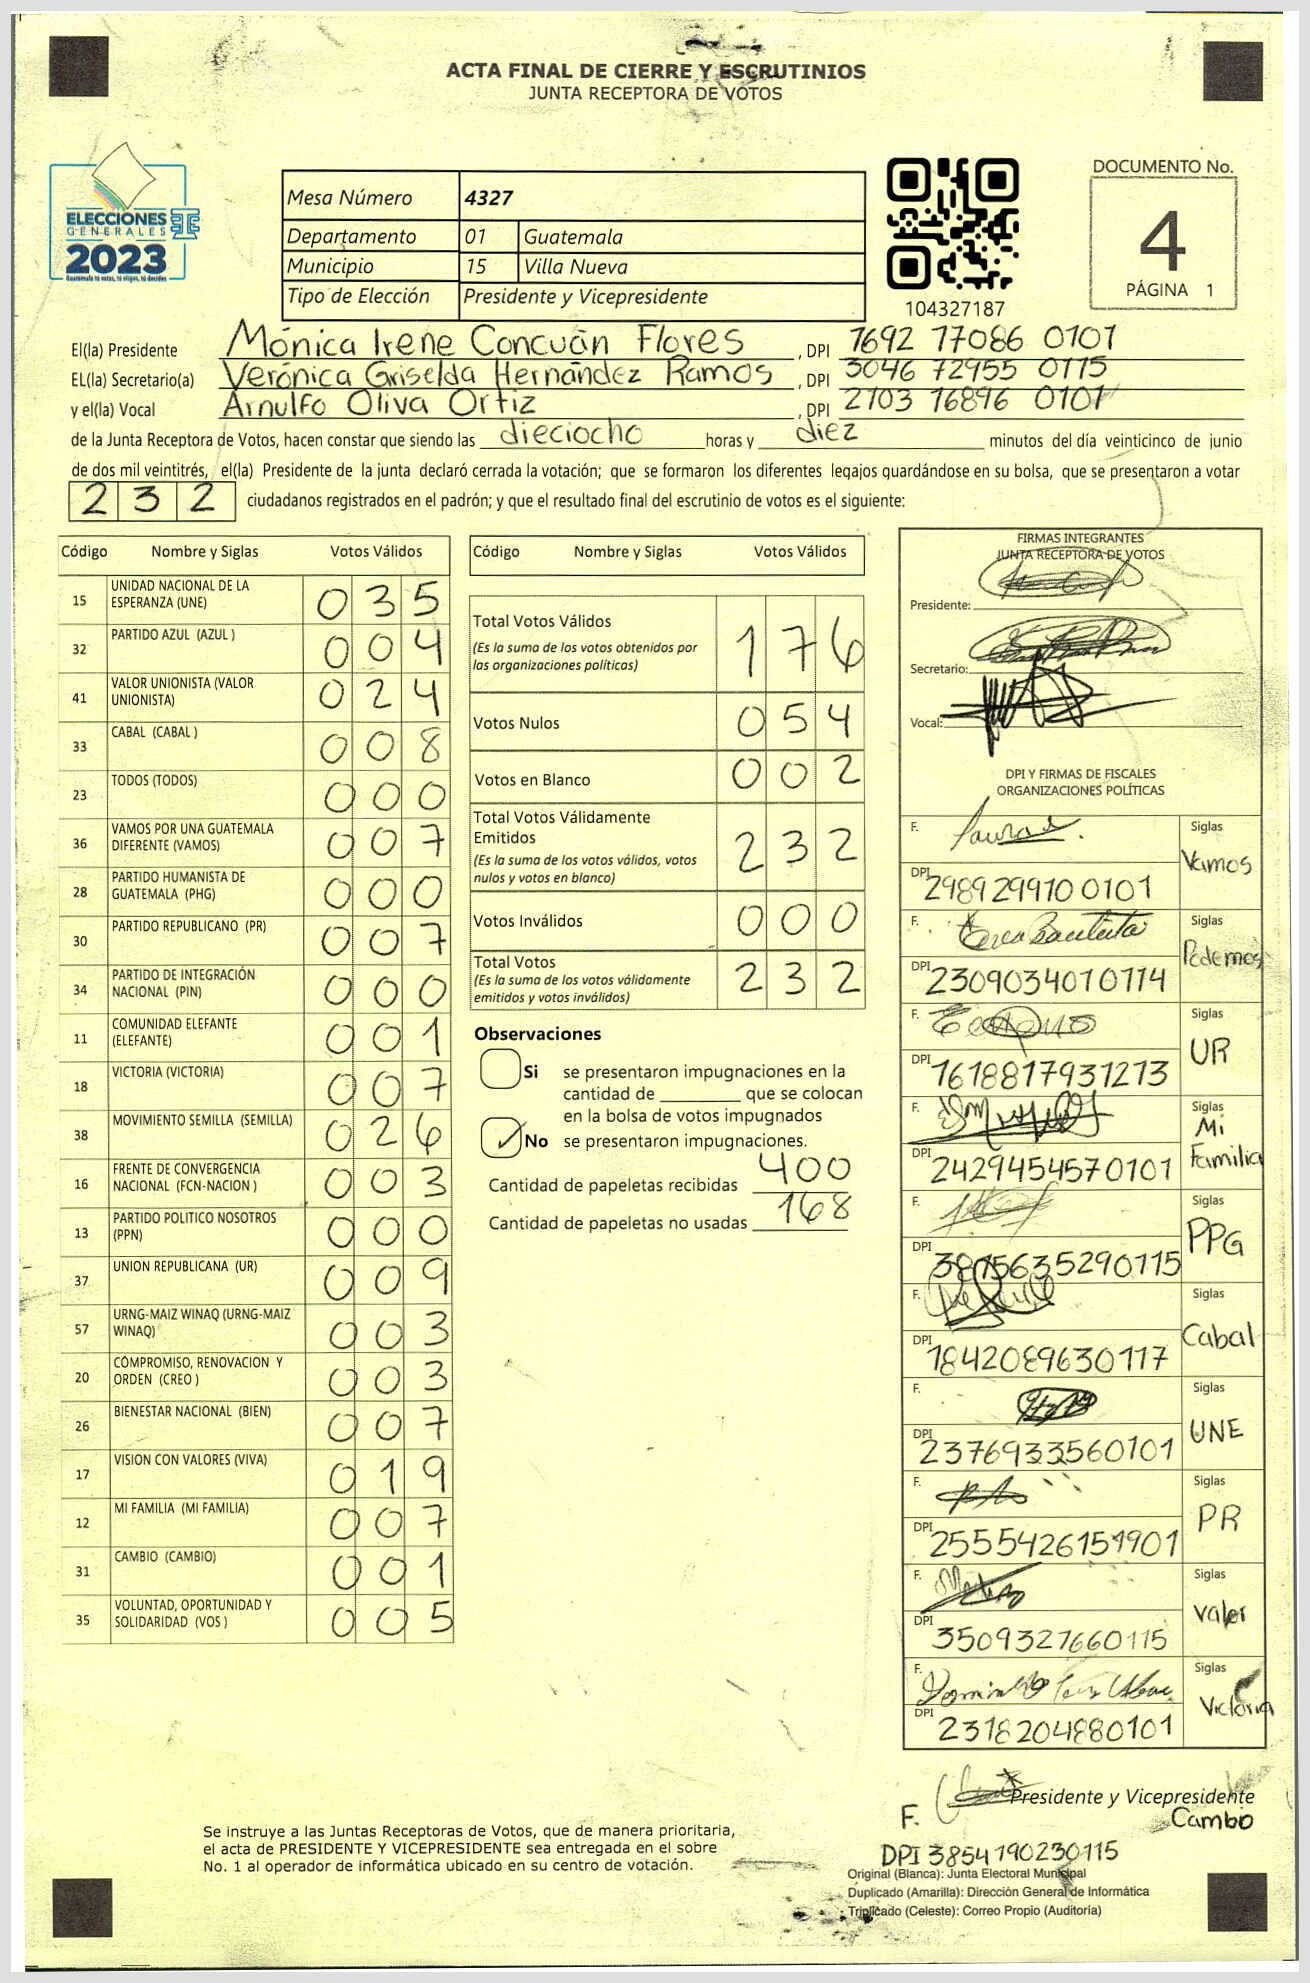 ACTA FINAL DE CIERRE Y ESCRUTINIOS
JUNTA RECEPTORA DE VOTOS
ELECCIONES
GENERALES
2023
Guatemala tú votas, tú eliges, tú decides
Mesa Número 4327
Departamento 01 Guatemala
Municipio 15 Villa Nueva
Tipo de Elección Presidente y Vicepresidente
104327187
DOCUMENTO No.
4
PÁGINA 1
El(la) Presidente Mónica Irene Concuán Flores , DPI 1692 77086 0101
EL(la) Secretario(a) Verónica Griselda Hernández Ramos , DPI 3046 72955 0115
y el(la) Vocal Arnulfo Oliva Ortiz , DPI 2103 16896 0101
de la Junta Receptora de Votos, hacen constar que siendo las dieciocho horas y diez minutos del día veinticinco de junio
de dos mil veintitrés, el(la) Presidente de la junta declaró cerrada la votación; que se formaron los diferentes legajos guardándose en su bolsa, que se presentaron a votar
232 ciudadanos registrados en el padrón; y que el resultado final del escrutinio de votos es el siguiente:
Código Nombre y Siglas Votos Válidos
15 UNIDAD NACIONAL DE LA ESPERANZA (UNE) 035
32 PARTIDO AZUL (AZUL ) 004
41 VALOR UNIONISTA (VALOR UNIONISTA) 024
33 CABAL (CABAL ) 008
23 TODOS (TODOS) 000
36 VAMOS POR UNA GUATEMALA DIFERENTE (VAMOS) 007
28 PARTIDO HUMANISTA DE GUATEMALA (PHG) 000
30 PARTIDO REPUBLICANO (PR) 007
34 PARTIDO DE INTEGRACIÓN NACIONAL (PIN) 000
11 COMUNIDAD ELEFANTE (ELEFANTE) 001
18 VICTORIA (VICTORIA) 007
38 MOVIMIENTO SEMILLA (SEMILLA) 026
16 FRENTE DE CONVERGENCIA NACIONAL (FCN-NACION ) 003
13 PARTIDO POLITICO NOSOTROS (PPN) 000
37 UNION REPUBLICANA (UR) 009
57 URNG-MAIZ WINAQ (URNG-MAIZ WINAQ) 003
20 COMPROMISO, RENOVACION Y ORDEN (CREO ) 003
26 BIENESTAR NACIONAL (BIEN) 007
17 VISION CON VALORES (VIVA) 019
12 MI FAMILIA (MI FAMILIA) 007
31 CAMBIO (CAMBIO) 001
35 VOLUNTAD, OPORTUNIDAD Y SOLIDARIDAD (VOS ) 005
Código Nombre y Siglas Votos Válidos
Total Votos Válidos 176
(Es la suma de los votos obtenidos por las organizaciones políticas)
Votos Nulos 054
Votos en Blanco 002
Total Votos Válidamente Emitidos 232
(Es la suma de los votos válidos, votos nulos y votos en blanco)
Votos Inválidos 000
Total Votos 232
(Es la suma de los votos válidamente emitidos y votos inválidos)
Observaciones
Si se presentaron impugnaciones en la
cantidad de ________ que se colocan
en la bolsa de votos impugnados
✓ No se presentaron impugnaciones.
Cantidad de papeletas recibidas 400
Cantidad de papeletas no usadas 168
FIRMAS INTEGRANTES
JUNTA RECEPTORA DE VOTOS
Presidente:
Secretario:
Vocal:
DPI Y FIRMAS DE FISCALES
ORGANIZACIONES POLÍTICAS
F. Siglas Vamos
DPI 2989299100101
F. Siglas Podemos
DPI 2309034010114
F. Siglas UR
DPI 1618817931213
F. Siglas Mi Familia
DPI 2429454570101
F. Siglas PPG
DPI 5635290115
F. Siglas Cabal
DPI 1842089630117
F. Siglas UNE
DPI 2376933560101
F. Siglas PR
DPI 2555426151901
F. Siglas Valor
DPI 3509327660115
F. Siglas Victoria
DPI 2318204880101
Presidente y Vicepresidente
F. Cambio
DPI 3854190230115
Se instruye a las Juntas Receptoras de Votos, que de manera prioritaria,
el acta de PRESIDENTE Y VICEPRESIDENTE sea entregada en el sobre
No. 1 al operador de informática ubicado en su centro de votación.
Original (Blanca): Junta Electoral Municipal
Duplicado (Amarilla): Dirección General de Informática
Triplicado (Celeste): Correo Propio (Auditoría)